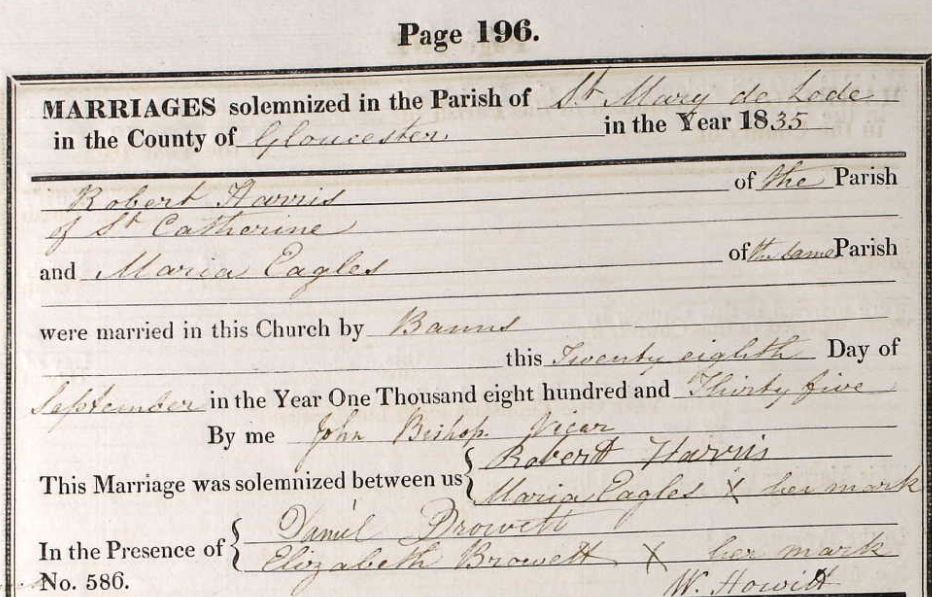 Page 196.
MARRIAGES solemnized in the Parish of St Mary de Lode
in the County of Gloucester in the Year 1835
Robert Harris of the Parish
of St Catherine
and Maria Eagles of the same Parish
were married in this Church by Banns
this Twenty eighth Day of
September in the Year One Thousand eight hundred and Thirty five
By me John Bishop. Vicar
This Marriage was solemnized between us { Robert Harris
Maria Eagles X her mark
In the Presence of { Daniel Browett
Elizabeth Browett X her mark
No. 586. W. Howitt